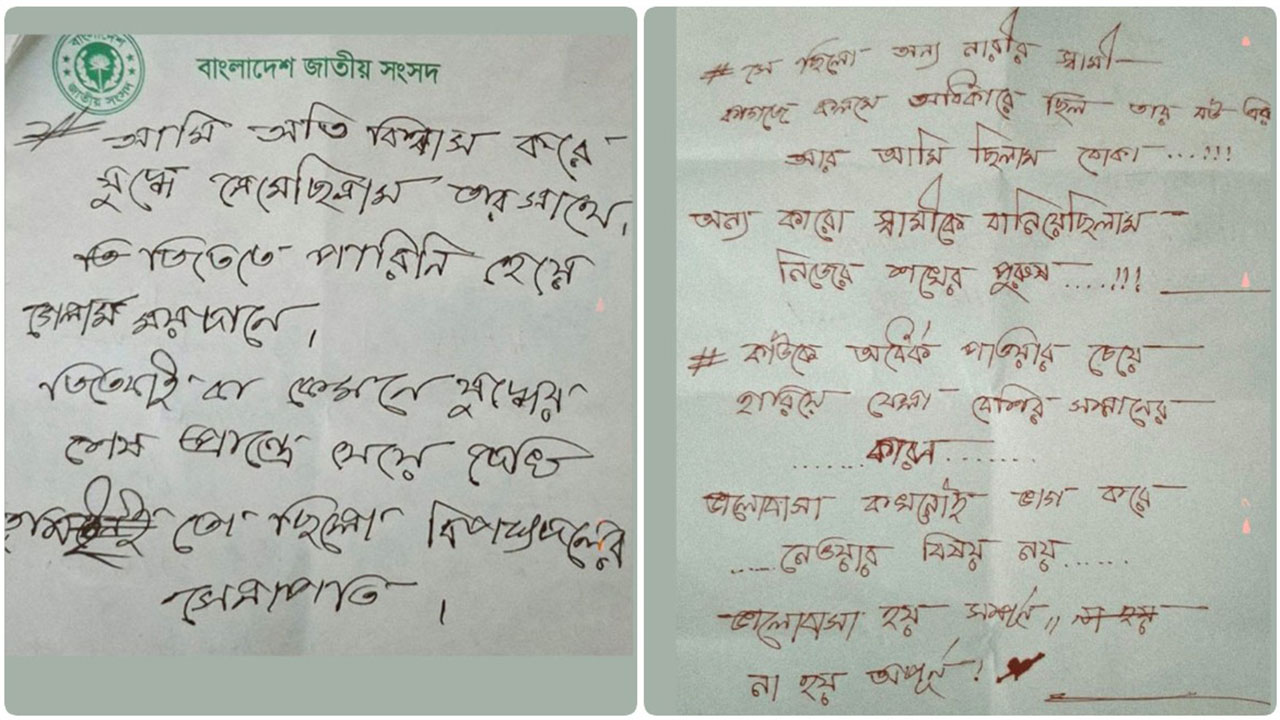 বাংলাদেশ
জাতীয় সংসদ
বাংলাদেশ জাতীয় সংসদ
# আমি অতি বিশ্বাস করে
যুদ্ধে নেমেছিলাম তার সাথে।
জিততে পারিনি হেরে
গেলাম ময়দানে।
জিতবোই বা কেমনে যুদ্ধের
শেষ প্রান্তে যেয়ে দেখি
তুমি তো ছিলো বিপক্ষদলের
সেনাপতি।
# সে ছিলো অন্য নারীর স্বামী
কাগজে কলমে অধিকারে ছিল তার বউ এর
আর আমি ছিলাম বোকা ...!!!
অন্য কারো স্বামীকে বানিয়েছিলাম
নিজের শখের পুরুষ ....!!!
# কাউকে অর্ধেক পাওয়ার চেয়ে
হারিয়ে ফেলা বেশির সম্মানের
....... কারন .......
ভালোবাসা কখনোই ভাগ করে
..... নেওয়ার বিষয় নয় ......
ভালোবাসা হয় সম্পূর্ন,,
না হয় অপূর্ন !